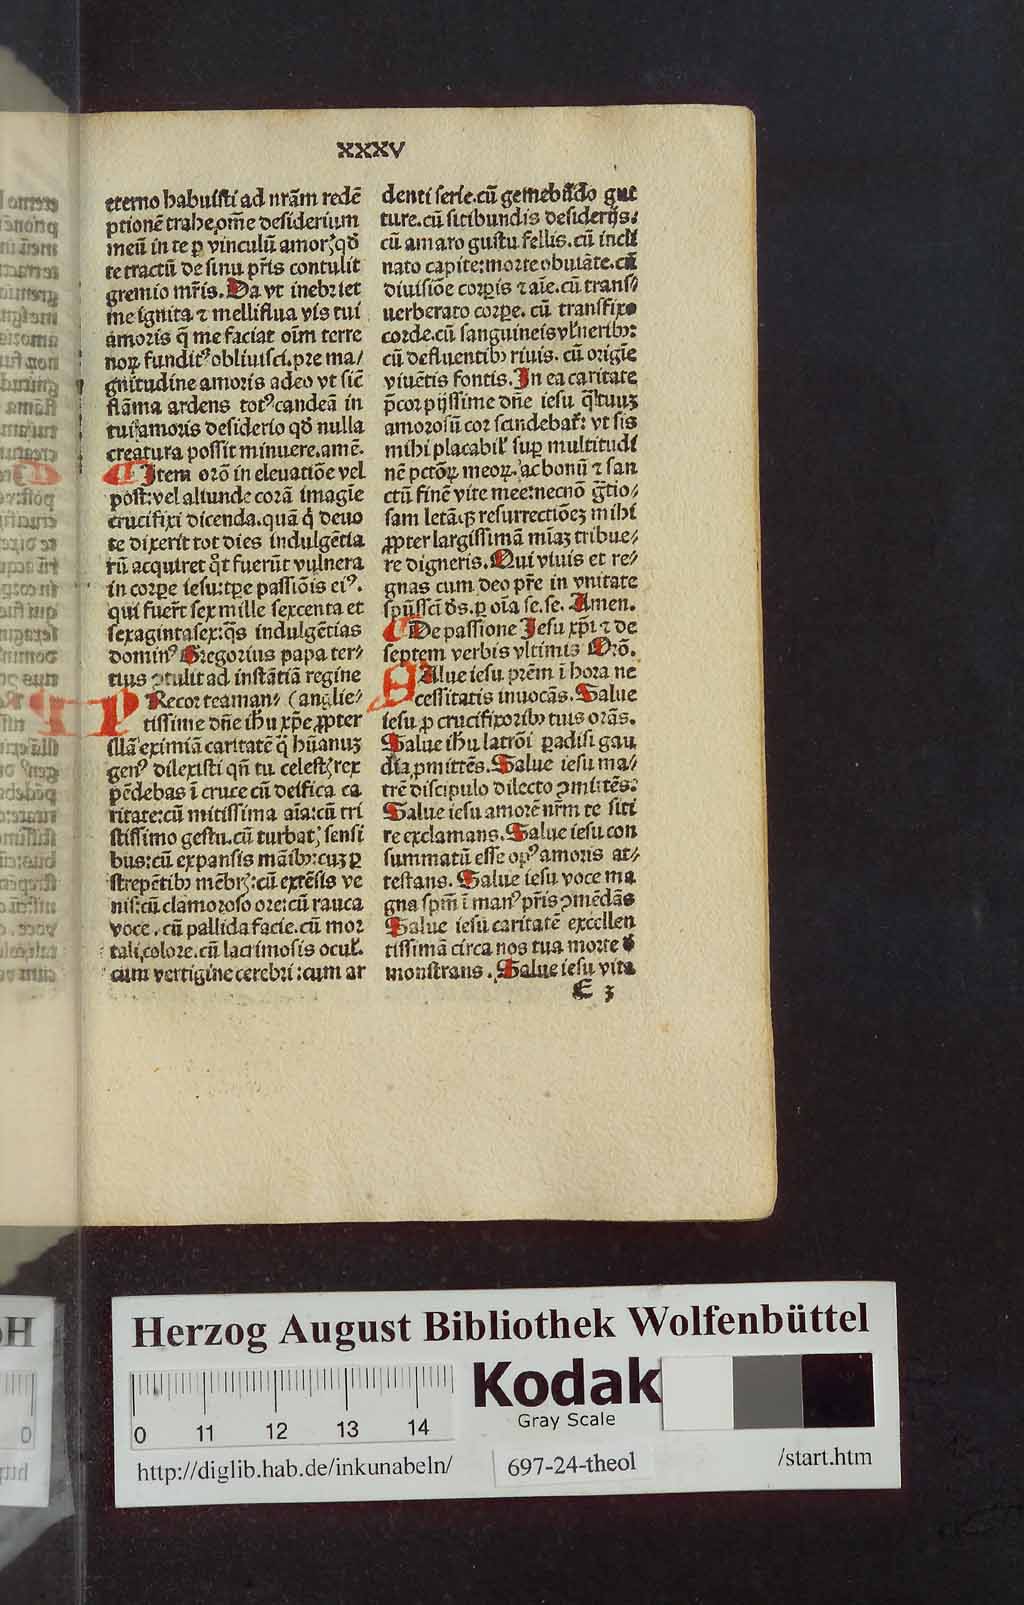 xxxv
eterno habuisti ad nrãm redẽ
ptionẽ trahe.om̃e desiderium
meũ in te ꝑ vinculũ amorꝭ qđ
te tractũ de sinu pr̃is contulit
gremio mr̃is. Da vt inebriet
me ignita ⁊ melliflua vis tui
amoris q̃ me faciat oĩm terre
noꝝ fundit⁹ obliuisci. pre ma/
gnitudine amoris adeo vt sic̃
flãma ardens tot⁹ candeã in
tui amoris desiderio qđ nulla
creatura possit minuere. amẽ.
¶ Item orõ in eleuatiõe vel
post: vel aliunde corã imagĩe
crucifixi dicenda. quã q̃ deuo
te dixerit tot dies indulgẽtia
rũ acquiret q̃t fuerũt vulnera
in corꝑe iesu: tꝑe passiõis ei⁹.
qui fuer̃t sex mille sexcenta et
sexagintasex: q̃s indulgẽtias
domin⁹ Gregorius papa ter/
tius ↄtulit ad instãtiã regine
PRecor te aman/ (anglie/
tissime dñe ihũ xp̃e ꝓpter
illã eximiã caritatẽ q̃ hũanuʒ
gen⁹ dilexisti qñ tu celestꝭ rex
pẽdebas ĩ cruce cũ deifica ca
ritate: cũ mitissima aĩa: cũ tri
stissimo gestu. cũ turbatꝭ sensi
bus: cũ expansis mãibꝰ: cuʒ ꝑ
strepẽtibꝰ mẽbrꝭ: cũ extẽsis ve
nis: cũ clamoroso ore: cũ rauca
voce. cũ pallida facie. cũ mor
tali colore. cũ lacrimosis ocul̃.
cum vertigine cerebri: cum ar
denti serie. cũ gemebũdo gut
ture. cũ sitibundis desiderijs.
cũ amaro gustu fellis. cũ incli
nato capite: morte obuiãte. cũ
diuisiõe corꝑis ⁊ aĩe. cũ trans/
uerberato corꝑe. cũ transfixo
corde. cũ sanguineis vl̃neribꝰ:
cũ defluentibꝰ riuis. cũ origĩe
viuẽtis fontis. In ea caritate
p̃cor pijssime dñe iesu q̃ tuuʒ
amorosũ cor scindebat̃: vt sis
mihi placabil̃ suꝑ multitudi
nẽ pctõꝝ meoꝝ. ac bonũ ⁊ san
ctũ finẽ vite mee: necnõ g̃tio/
sam letãqʒ resurrectiõeʒ mihi
ꝓpter largissimã mĩaʒ tribue/
re digneris. Qui viuis et re/
gnas cum deo pr̃e in vnitate
spũssci d̃s. ꝑ oĩa se. se. Amen.
¶ De passione Jesu xp̃i ⁊ de
septem verbis vltimis Orõ.
SAlue iesu prẽm ĩ hora ne
cessitatis inuocãs. Salue
iesu ꝓ crucifixoribꝰ tuis orãs.
Salue ihũ latrõi ꝑadisi gau
dia ꝓmittẽs. Salue iesu ma/
trẽ discipulo dilecto ↄmittẽs.
Salue iesu amorẽ nr̃m te siti
re exclamans. Salue iesu con
summatũ esse op⁹ amoris at/
testans. Salue iesu voce ma
gna spm̃ ĩ man⁹ pr̃is ↄmẽdãs
Salue iesu caritatẽ excellen
tissimã circa nos tua morte đ
monstrans. Salue iesu vita
E 3
Herzog August Bibliothek Wolfenbüttel
0 11 12 13 14
Kodak
Gray Scale
http://diglib.hab.de/inkunabeln/
697-24-theol
/start.htm